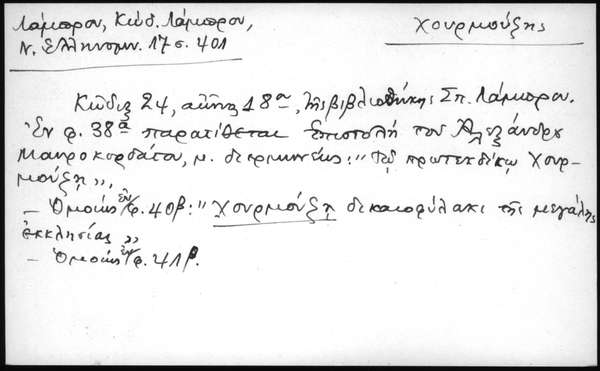 Λάμπρου, Κώδ. Λάμπρου,
Ν. Ελληνομν. 17 σ. 401
Χουρμούζης
Κῶδιξ 24, αἰῶνος 18ᵃ, τῆς βιβλιοθήκης Σπ. Λάμπρου.
Ἐν φ. 38ᵃ παρατίθεται ἐπιστολή τοῦ Ἀλεξάνδρου
Μαυροκορδάτου, μ. διερμηνέως: "Τῷ πρωτεκδίκῳ Χουρ-
μούζῃ",
– Ὁμοίως ἐν φ. 40β: "Χουρμούζῃ δικαιοφύλακι τῆς μεγάλης
ἐκκλησίας"
– Ὁμοίως ἐν φ. 41β.